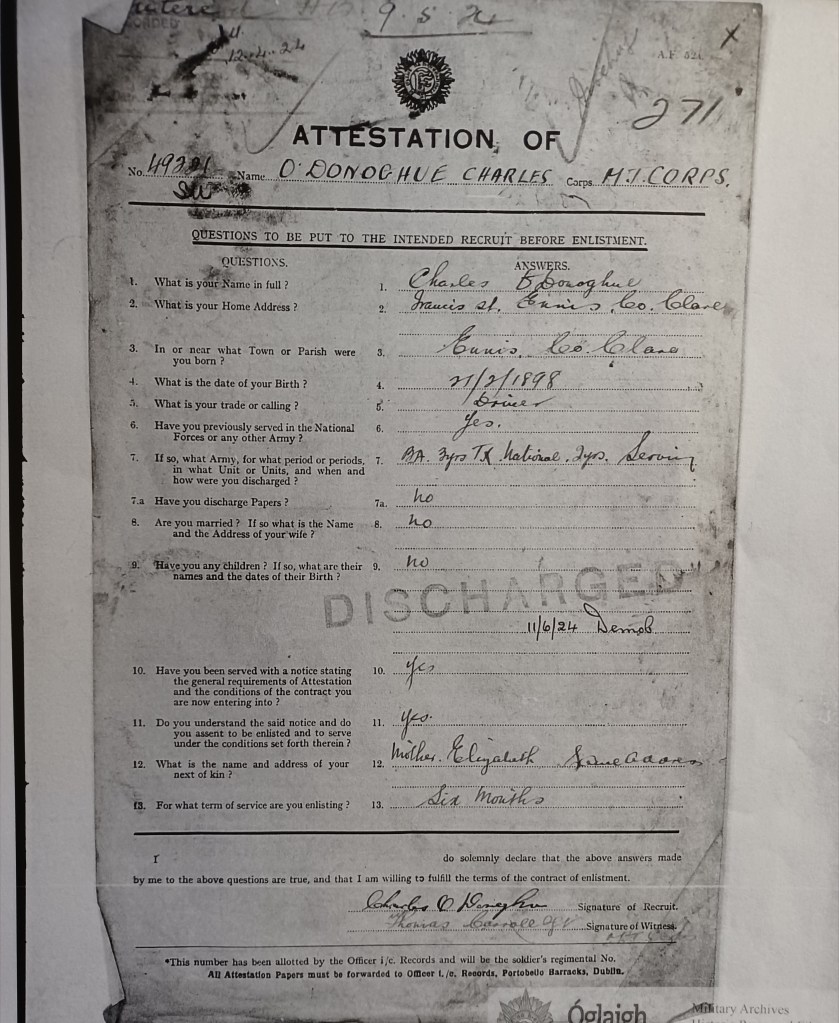 9.5.24
12.4.24
A.F. 521
271
ATTESTATION OF
No. 49221 Name O'DONOGHUE CHARLES Corps M.T. CORPS.
QUESTIONS TO BE PUT TO THE INTENDED RECRUIT BEFORE ENLISTMENT.
QUESTIONS. ANSWERS.
1. What is your Name in full ? 1. Charles O'Donoghue
2. What is your Home Address ? 2. Francis St. Ennis, Co. Clare
3. In or near what Town or Parish were you born ? 3. Ennis, Co. Clare
4. What is the date of your Birth ? 4. 21/2/1898
5. What is your trade or calling ? 5. Driver
6. Have you previously served in the National Forces or any other Army ? 6. Yes.
7. If so, what Army, for what period or periods, in what Unit or Units, and when and how were you discharged ? 7. BA. 3yrs TX National. 2yrs. Serving
7.a Have you discharge Papers ? 7a. no
8. Are you married ? If so what is the Name and the Address of your wife ? 8. no
9. Have you any children ? If so, what are their names and the dates of their Birth ? 9. no
DISCHARGED
11/6/24 Demob
10. Have you been served with a notice stating the general requirements of Attestation and the conditions of the contract you are now entering into ? 10. yes
11. Do you understand the said notice and do you assent to be enlisted and to serve under the conditions set forth therein ? 11. yes.
12. What is the name and address of your next of kin ? 12. Mother. Elizabeth Same address
13. For what term of service are you enlisting ? 13. Six Months
I do solemnly declare that the above answers made
by me to the above questions are true, and that I am willing to fulfill the terms of the contract of enlistment.
Charles O Donoghue Signature of Recruit.
Thomas Carroll Signature of Witness.
*This number has been allotted by the Officer i/c. Records and will be the soldier's regimental No.
All Attestation Papers must be forwarded to Officer i/c. Records, Portobello Barracks, Dublin.
Óglaigh
Military Archives